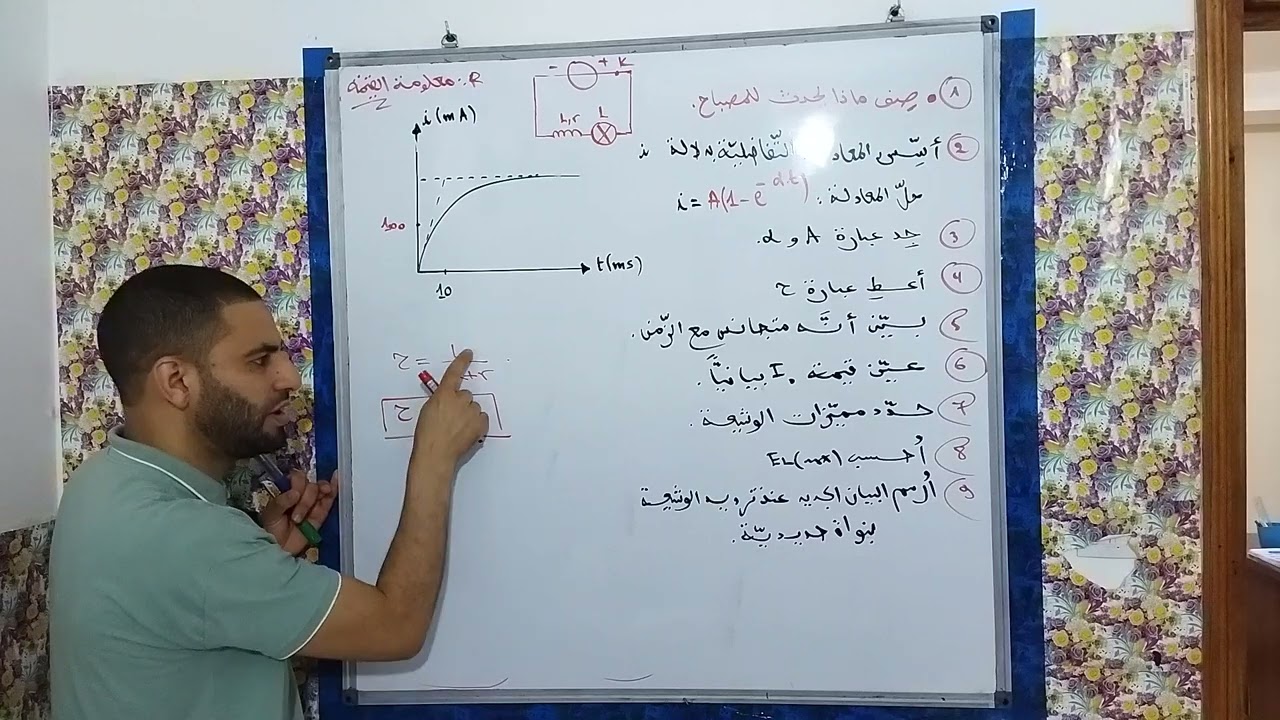 R: معلومة القيمة
i (mA)
100
10
t(ms)
- + K
L,r L
① صِف ماذا يحدث للمصباح.
② أسّس المعاد التّفاضليّة بدلالة i
حلّ المعادلة: i = A(1 - e^-α.t)
③ جِد عبارة A و α.
④ أعطِ عبارة τ
⑤ بيّن أنَّه متجانس مع الزّمن.
⑥ عيّن قيمة I₀ بيانيًّا.
⑦ حدّد مميّزات الوشيعة.
⑧ أُحسب EL(max)
⑨ أُرسم البيان الجديد عند تزويد الوشيعة
بنواة حديديّة.
τ = L
+r
τ